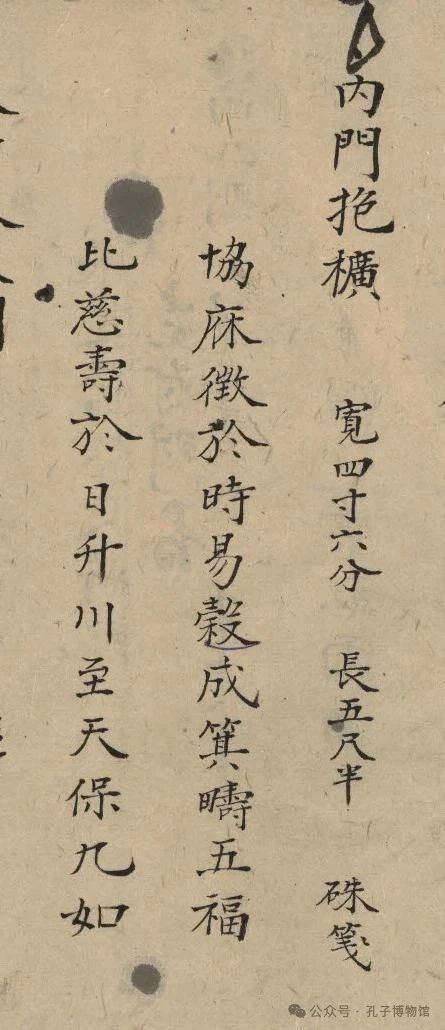 內門抱穬 寬四寸六分 長五尺半 硃箋
協庥徵於時易穀成箕疇五福
比慈壽於日升川至天保九如
公众号 · 孔子博物馆